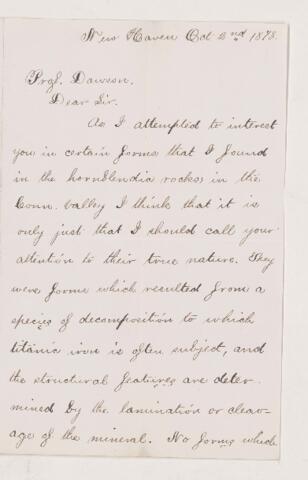 New Haven Oct 2nd 1878.
Prof. Dawson.
Dear Sir.
As I attempted to interest
you in certain forms that I found
in the hornblendic rocks in the
Conn. valley I think that it is
only just that I should call your
attention to their true nature. They
were forms which resulted from a
species of decomposition to which
titanic iron is often subject, and
the structural features are deter-
mined by the lamination or cleav-
age of the mineral. No forms which